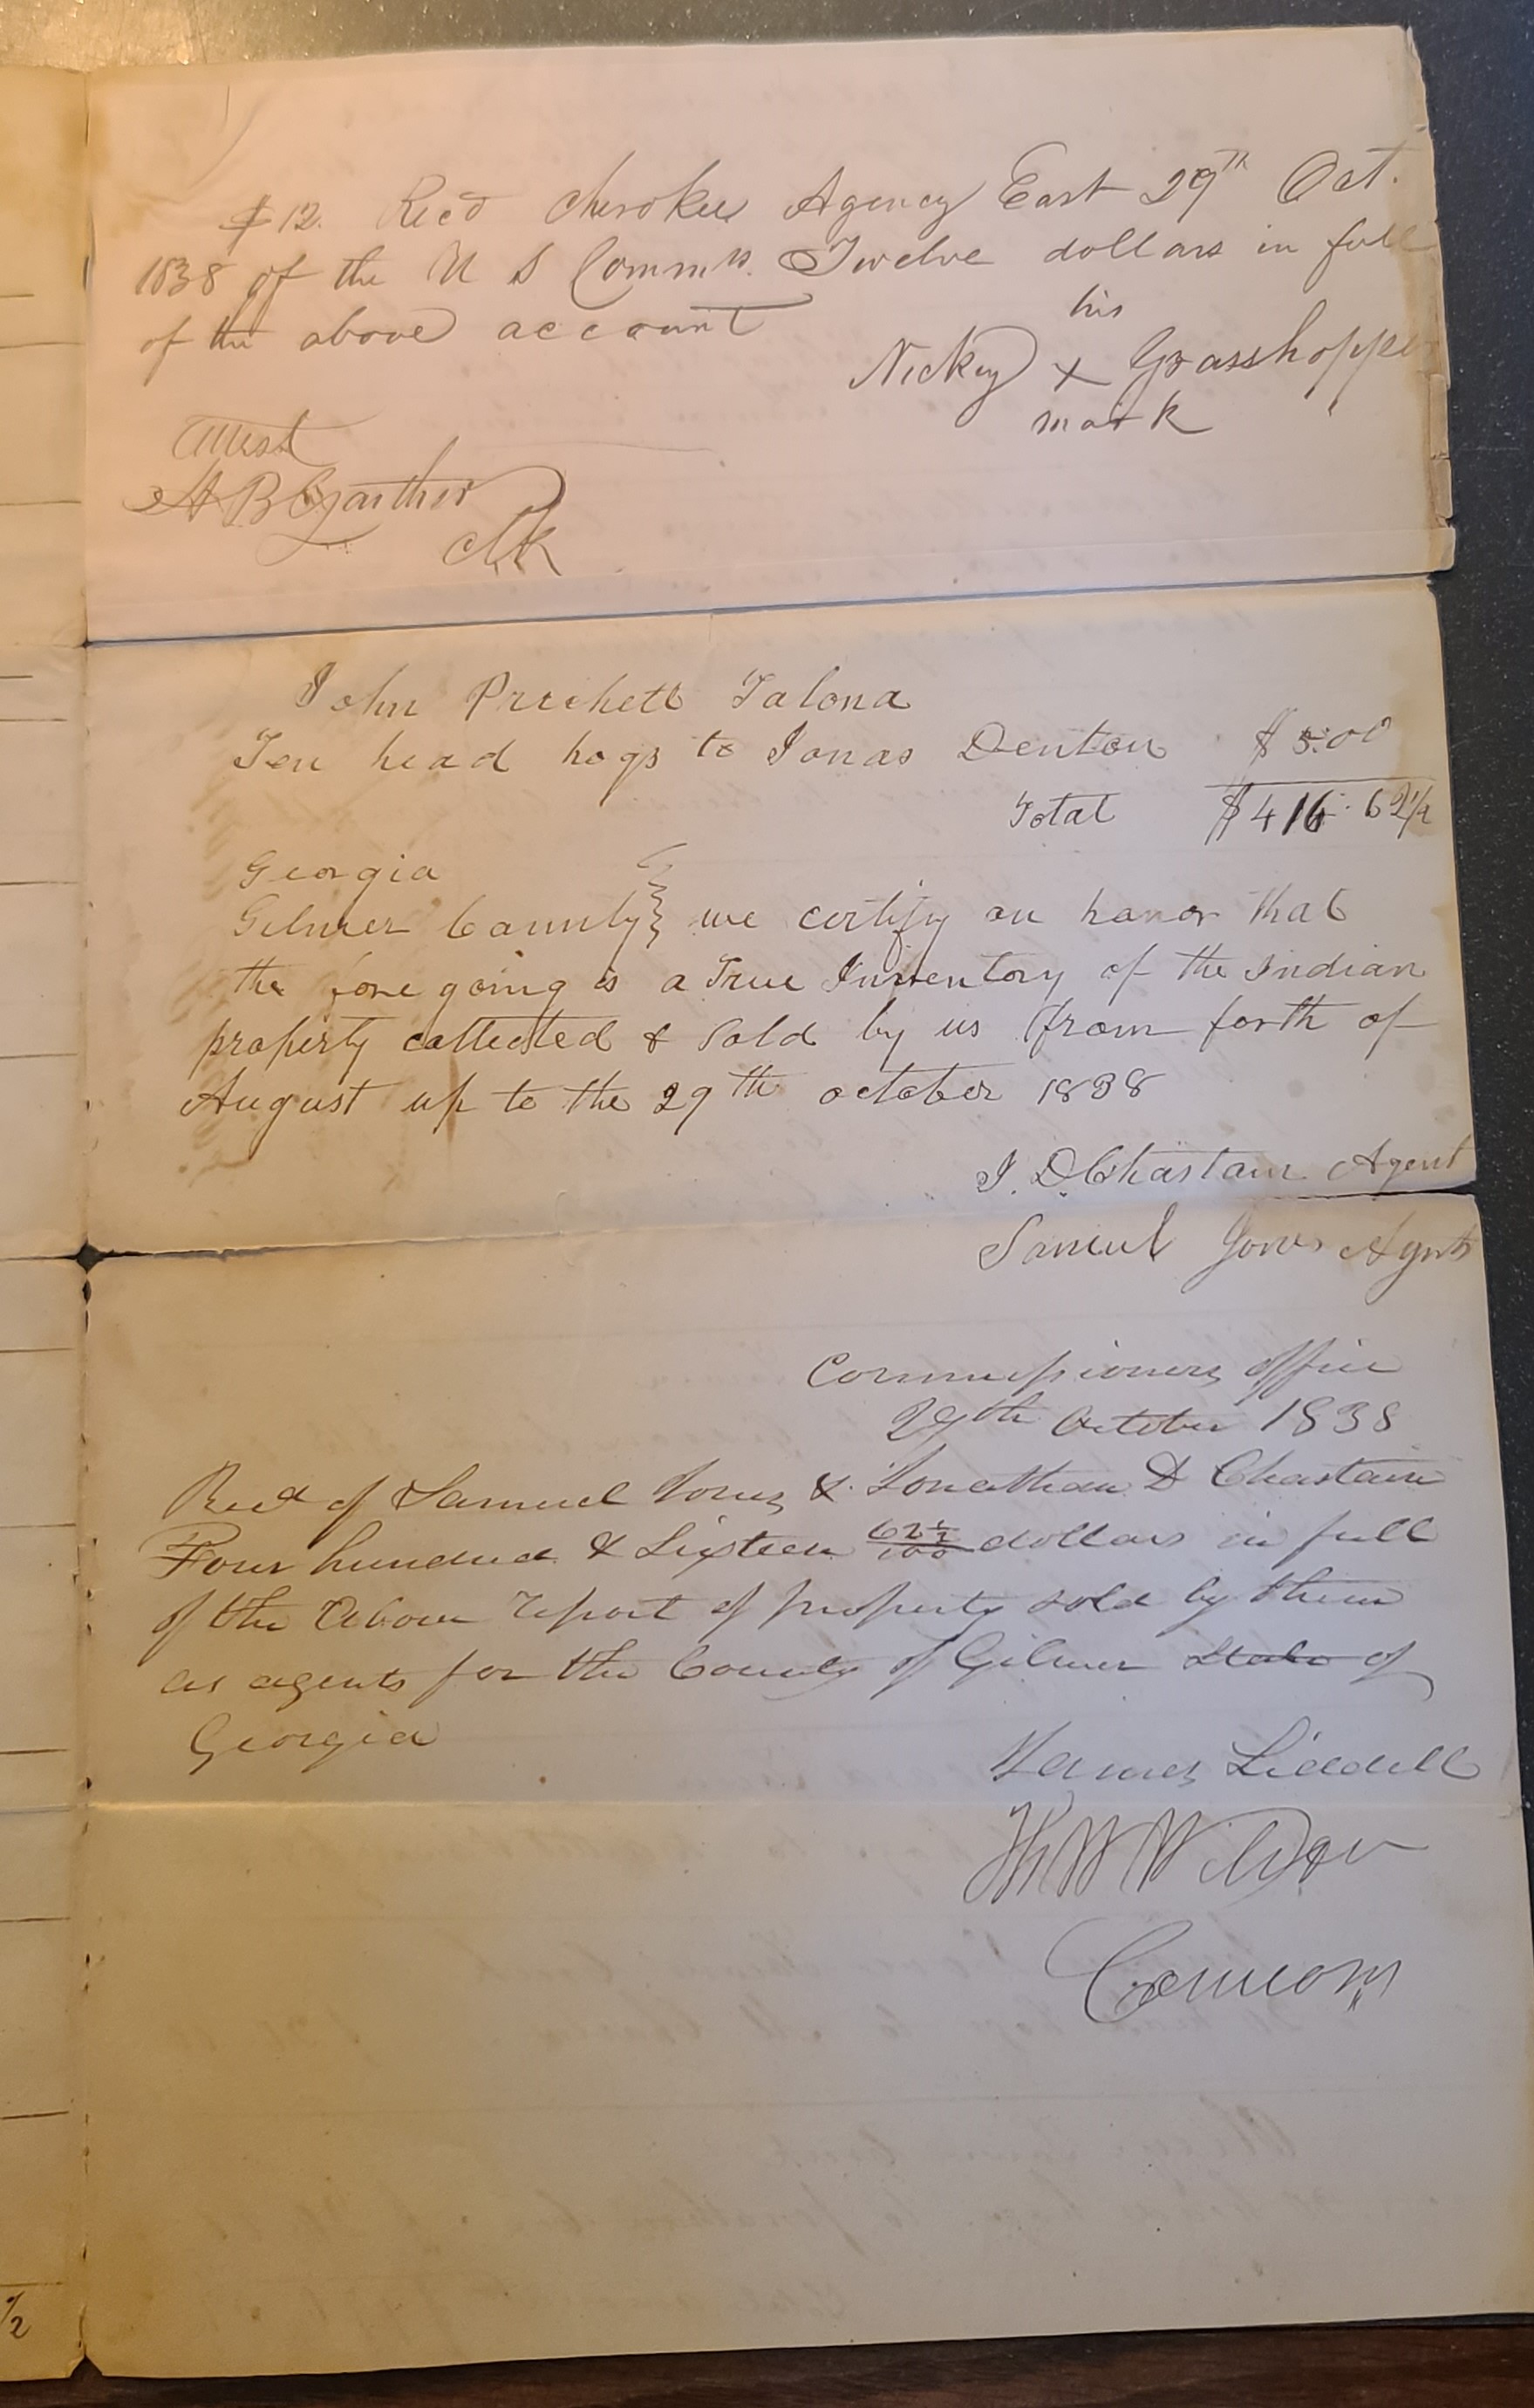 $12. Recd Cherokee Agency East 29th Oct.
1838 of the U S Commrs. Twelve dollars in full
of the above account
his
Nickey x Grasshopper
mark
Attest
Clk
John Prichett Talona
Ten head hogs to Jonas Denton $ 5.00
Total $416.62½
Georgia
Gilmer County } we certify on honor that
the fore going is a True Inventory of the Indian
property collected & Sold by us from forth of
August up to the 29th october 1838
J. D. Chastain Agent
Samuel Jones Agents
Commissioners office
29th October 1838
Recd of Samuel Jones & Jonathan D Chastain
Four hundred & Sixteen 62½/100 dollars in full
of the Above report of property sold by them
as agents for the County of Gilmer State of
Georgia
James Liddell
Comrs
½